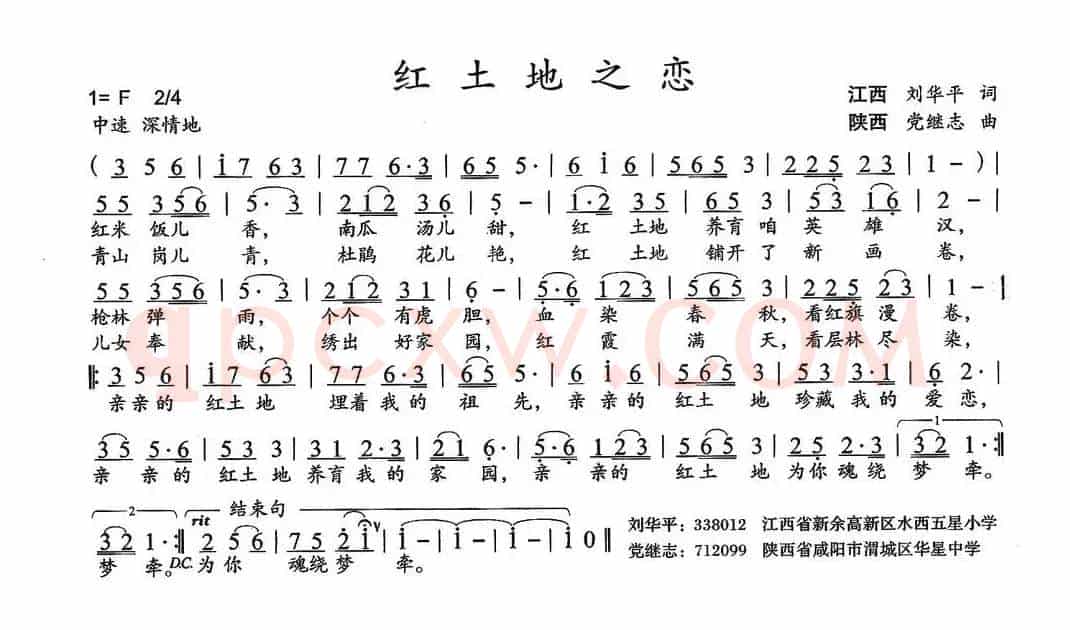 红土地之恋
1= F 2/4
江西 刘华平 词
中速 深情地
陕西 党继志 曲
( 3 5 6 | i 7 6 3 | 7 7 6·3 | 6 5 5· | 6 i 6 | 5 6 5 3 | 2 2 5 2 3 | 1 - ) |
5 5 3 5 6 | 5· 3 | 2 1 2 3 6 | 5 - | 1·2 3 5 | 6 5 3 | 5 3 1 6 | 2 - |
红米 饭儿 香, 南瓜 汤儿 甜, 红 土地 养育 咱 英 雄 汉,
青山 岗儿 青, 杜鹃 花儿 艳, 红 土地 铺开 了 新 画 卷,
5 5 3 5 6 | 5· 3 | 2 1 2 3 3 | 6 - | 5·6 1 2 3 | 5 6 5 3 | 2 2 5 2 3 | 1 - |
枪林 弹 雨, 个个 有虎 胆, 血 染 春 秋, 看红旗 漫 卷,
儿女 奉 献, 绣出 好家 园, 红 霞 满 天, 看层林 尽 染,
‖: 3 5 6 | i 7 6 3 | 7 7 6·3 | 6 5 5· | 6 i 6 | 5 6 5 3 | 5 3 3·1 | 6 2· |
亲亲的 红土 地 埋着 我 的 祖 先, 亲 亲 的 红土 地 珍藏 我 的 爱 恋,
1
3 5 5·6 | 5 3 3 | 3 1 2·3 | 2 1 6· | 5·6 1 2 3 | 5 6 5 3 | 2 5 2·3 | 3 2 1· :‖
亲 亲的 红土 地 养育 我 的 家 园, 亲 亲的 红土 地 为你 魂 绕 梦 牵。
2 rit 结束句
3 2 1· :‖ 2 5 6 | 7 5 2 i | i - | i - | i - | i 0 ‖
梦 牵。 D.C. 为 你 魂绕 梦 牵。
刘华平:338012 江西省新余高新区水西五星小学
党继志:712099 陕西省咸阳市渭城区华星中学
qpcxw.COM